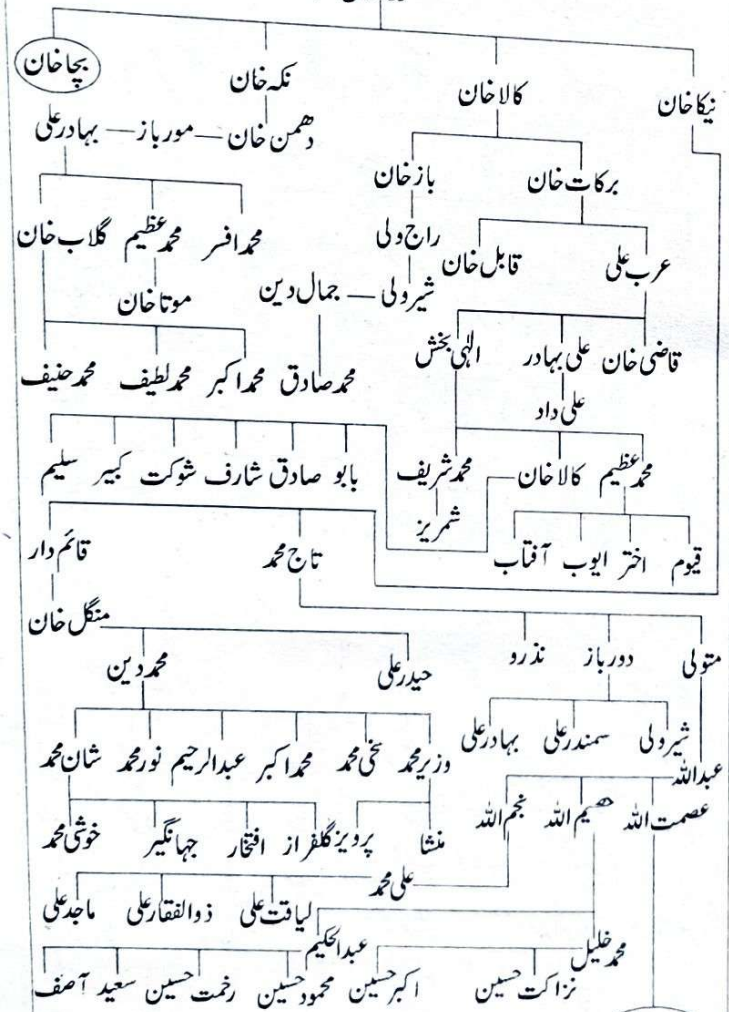 نیکا خان کالا خان نکہ خان بچا خان
دھمن خان مور باز بہادر علی
برکات خان باز خان
محمد افسر محمد عظیم گلاب خان
عرب علی قابل خان راج ولی
شیر ولی جمال دین موتا خان
قاضی خان علی بہادر الٰہی بخش
محمد صادق محمد اکبر محمد لطیف محمد حنیف
علی داد
محمد عظیم کالا خان محمد شریف
بابو صادق شارف شوکت کبیر سلیم
شمریز
قیوم اختر ایوب آفتاب
تاج محمد قائم دار
منگل خان
متولی دور باز نذرو
حیدر علی محمد دین
شیر ولی سمندر علی بہادر علی
وزیر محمد سخی محمد محمد اکبر عبدالرحیم نور محمد شان محمد
عبداللہ
عصمت اللہ ھصیم اللہ نجم اللہ
منشا پرویز گلفراز افتخار جہانگیر خوشی محمد
علی محمد
لیاقت علی ذوالفقار علی ماجد علی
محمد خلیل عبدالحکیم
نزاکت حسین اکبر حسین محمود حسین رخمت حسین سعید آصف